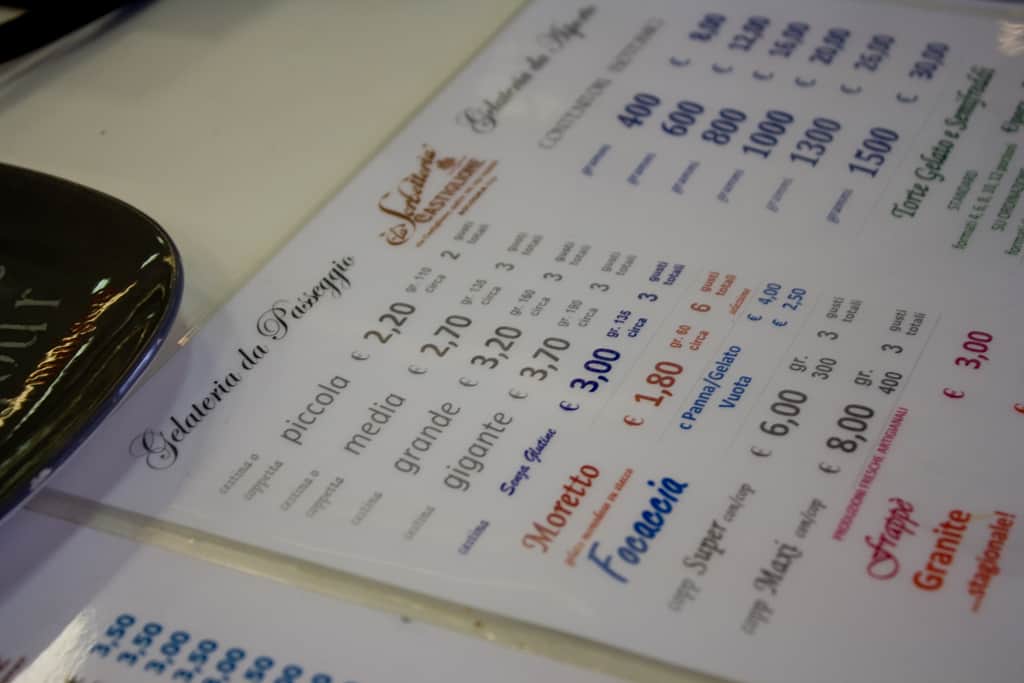 Gelateria da Passeggio
cestina o coppetta piccola € 2,20 gr. 110 circa 2 gusti totali
cestina o coppetta media € 2,70 gr. 135 circa 3 gusti totali
cestina grande € 3,20 gr. 160 circa 3 gusti totali
cestina gigante € 3,70 gr. 190 circa 3 gusti totali
cestina Senza Glutine € 3,00 gr. 135 circa 3 gusti totali
Moretto € 1,80 gr. 60 circa 6 gusti totali
Focaccia c Panna/Gelato € 4,00
Vuota € 2,50
copp Super con/cop € 6,00 gr. 300 3 gusti totali
copp Maxi con/cop € 8,00 gr. 400 3 gusti totali
PRODUZIONI FRESCHI ARTIGIANALI
Frappè € 3,00
Granite
...stagionale!
la Sorbetteria
CASTIGLIONE
Gelateria da
CONTENITORI
grammi 400 € 8,00
grammi 600 € 12,00
grammi 800 € 16,00
grammi 1000 € 20,00
grammi 1300 € 26,00
grammi 1500 € 30,00
Torte Gelato e Semifreddi
STANDARD
formati 4, 6, 8, 10, 12 persone
SU ORDINAZIONE
3,50
3,50
3,00
3,50